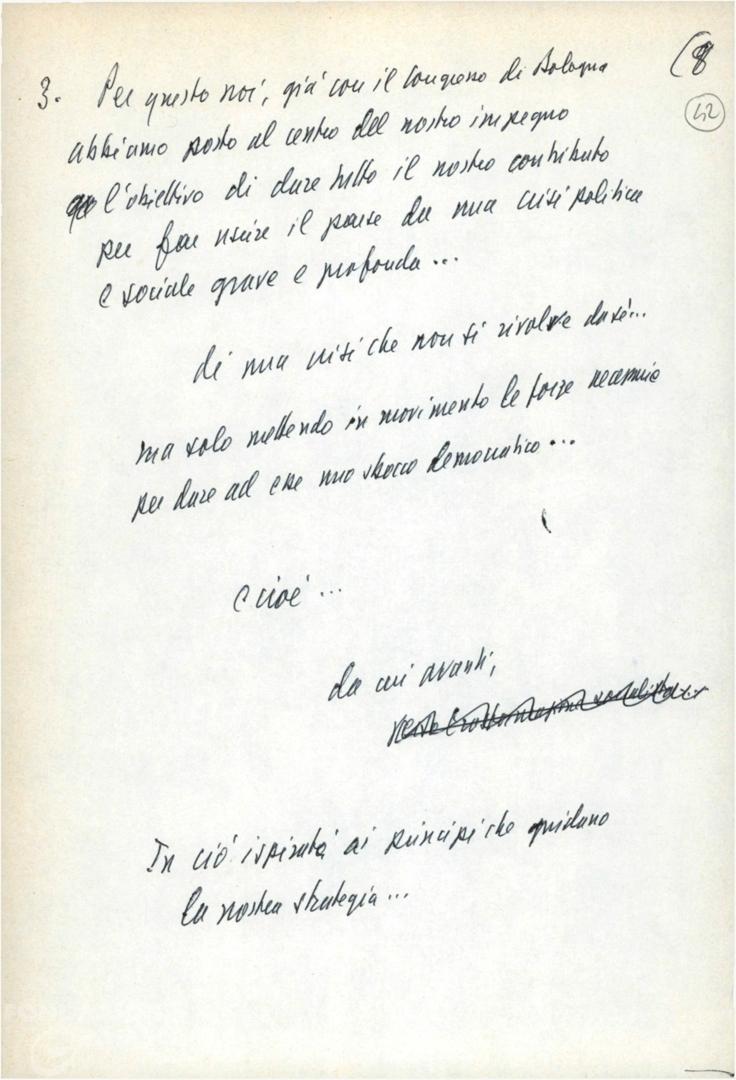 (8
42
3. Per questo noi, già con il Congresso di Bologna
abbiamo posto al centro del nostro impegno
l'obiettivo di dare tutto il nostro contributo
per far uscire il paese da una crisi politica
e sociale grave e profonda...
di una crisi che non si risolve da sé...
ma solo mettendo in movimento le forze necessarie
per dare ad essa uno sbocco democratico...
e cioè...
da cui avanti,
In ciò ispirati ai principi che guidano
la nostra strategia...